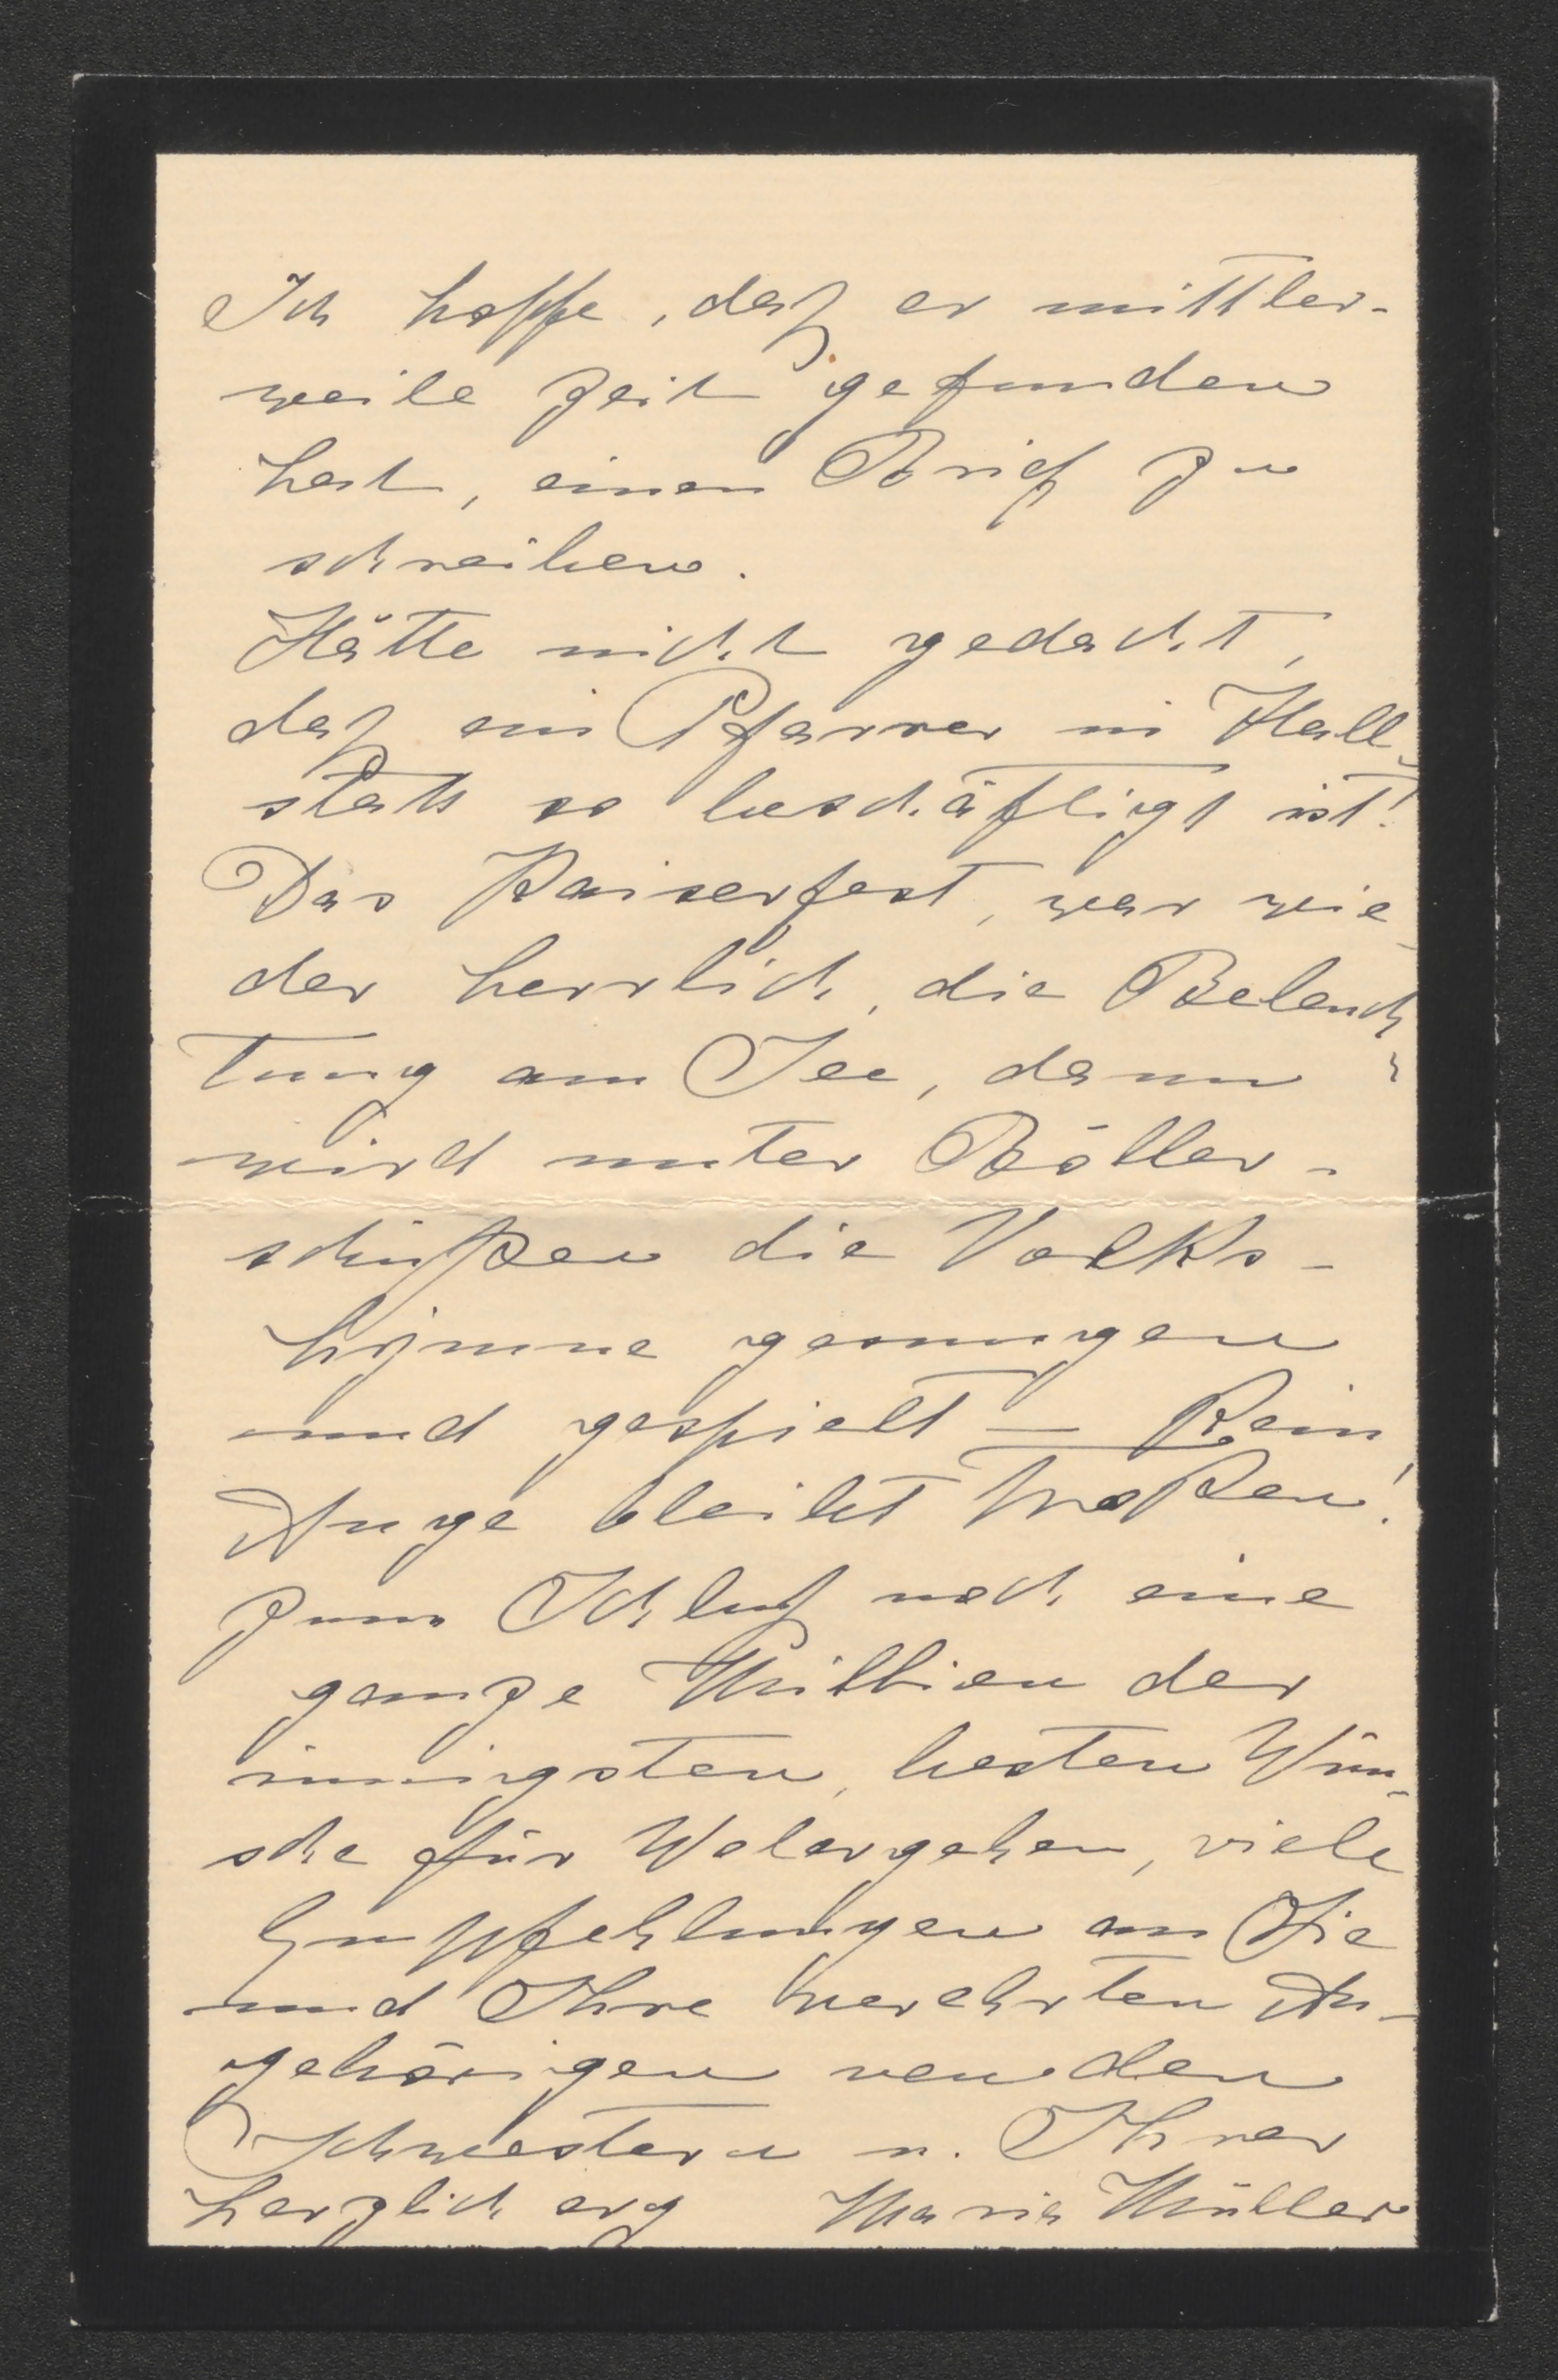 Ich hoffe, daß er mittler-
weile Zeit gefunden
hat, einen Brief zu
schreiben.
Hätte nicht gedacht,
daß ein Pfarrer in Hall-
statt so beschäftigt ist!
Das Kaiserfest, war wie-
der herrlich, die Beleuch-
tung am See, dann
wird unter Böller-
schüßen die Volks-
hymne gesungen
und gespielt – Kein
Auge bleibt troken!
Zum Schluß noch eine
ganze Million der
innigsten, besten Wün-
sche für Wolergehen, viele
Empfehlungen an Sie
und Ihre verehrten An-
gehörigen von den
Schwestern u. Ihrer
herzlich erg Maria Müller